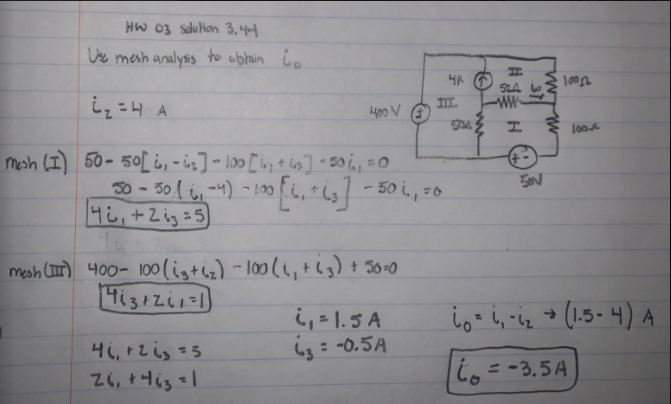 HW 03 solution 3.44
Use mesh analysis to obtain i₀
i₂ = 4 A
400 V
4A
II
100Ω
50Ω
i₀
III
50Ω
I
100Ω
50V
mesh (I) 50 - 50[i₁ - i₂] - 100[i₁ + i₃] - 50i₁ = 0
50 - 50(i₁ - 4) - 100[i₁ + i₃] - 50i₁ = 0
4i₁ + 2i₃ = 5
mesh (III) 400 - 100(i₃ + i₂) - 100(i₁ + i₃) + 50 = 0
4i₃ + 2i₁ = 1
4i₁ + 2i₃ = 5
2i₁ + 4i₃ = 1
i₁ = 1.5 A
i₃ = -0.5 A
i₀ = i₁ - i₂ → (1.5 - 4) A
i₀ = -3.5 A